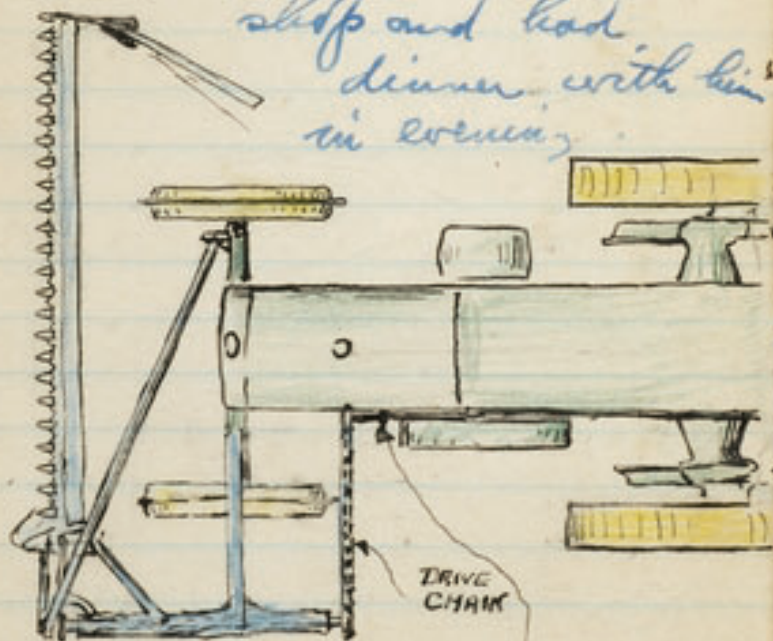 shop and had
dinner with him
in evening.
DRIVE
CHAIN